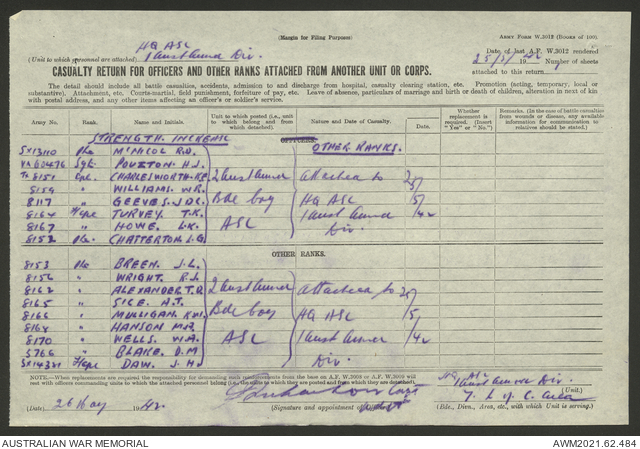 (Margin for Filing Purposes)
ARMY FORM W.3012 (BOOKS OF 100).
HQ ASC
(Unit to which personnel are attached) 1 Aust Armd Div.
Date of last A.F. W.3012 rendered
25/5/42 Number of sheets
attached to this return
CASUALTY RETURN FOR OFFICERS AND OTHER RANKS ATTACHED FROM ANOTHER UNIT OR CORPS.
The detail should include all battle casualties, accidents, admission to and discharge from hospital, casualty clearing station, etc. Promotion (acting, temporary, local or
substantive). Attachment, etc. Courts-martial, field punishment, forfeiture of pay, etc. Leave of absence, particulars of marriage and birth or death of children, alteration in next of kin
with postal address, and any other items affecting an officer's or soldier's service.
Army No. Rank. Name and Initials. Unit to which posted (i.e., unit to which they belong and from which detached). Nature and Date of Casualty. Date. Whether replacement is required. (Insert "Yes" or "No.") Remarks. (In the case of battle casualties from wounds or disease, any available information for communication to relatives should be stated.)
STRENGTH INCREASE OFFICERS. OTHER RANKS.
SX13110 Pte McNICOL R.D.
VX60476 Sgt. POULTON H.J.
8151 Cpl. CHARLESWORTH 2 Aust Armd Attached to 25
8159 " WILLIAMS W.R.
8117 " GEEVES J.D.C. Bde Coy HQ ASC /5/
8164 TURVEY. T.K. 1 Aust Armd 42
8167 " HOWE. L.K. ASC Div.
8152 Pte. CHATTERTON J.G.
OTHER RANKS.
8153 Pte BREEN. J.L.
8156 " WRIGHT. R.J.
8162 " ALEXANDER T.R. 2 Aust Armd Attached to 25
8165 " SICE. H.T. Bde Coy /5/
8166 " MULLIGAN HQ ASC
8168 " HANSON M.J. 1 Aust Armd 42
8170 " WELLS. W.A. ASC
5766 " BLAKE. D.M
SX14381 DAW. J.H. Div.
NOTE.—When replacements are required, the responsibility for demanding such reinforcements from the base on A.F. W.3008 or A.F. W.3009 will
rest with officers commanding units to which the attached personnel belong (i.e., the units to which they are posted and from which they are detached).
HQ ASC
1 Aust Armd Div.
(Unit.)
(Date) 26 May 1942. Capt
(Signature and appointment of Adjt) 7. L of C. Area
(Bde., Divn., Area, etc., with which Unit is serving.)
AUSTRALIAN WAR MEMORIAL AWM2021.62.484